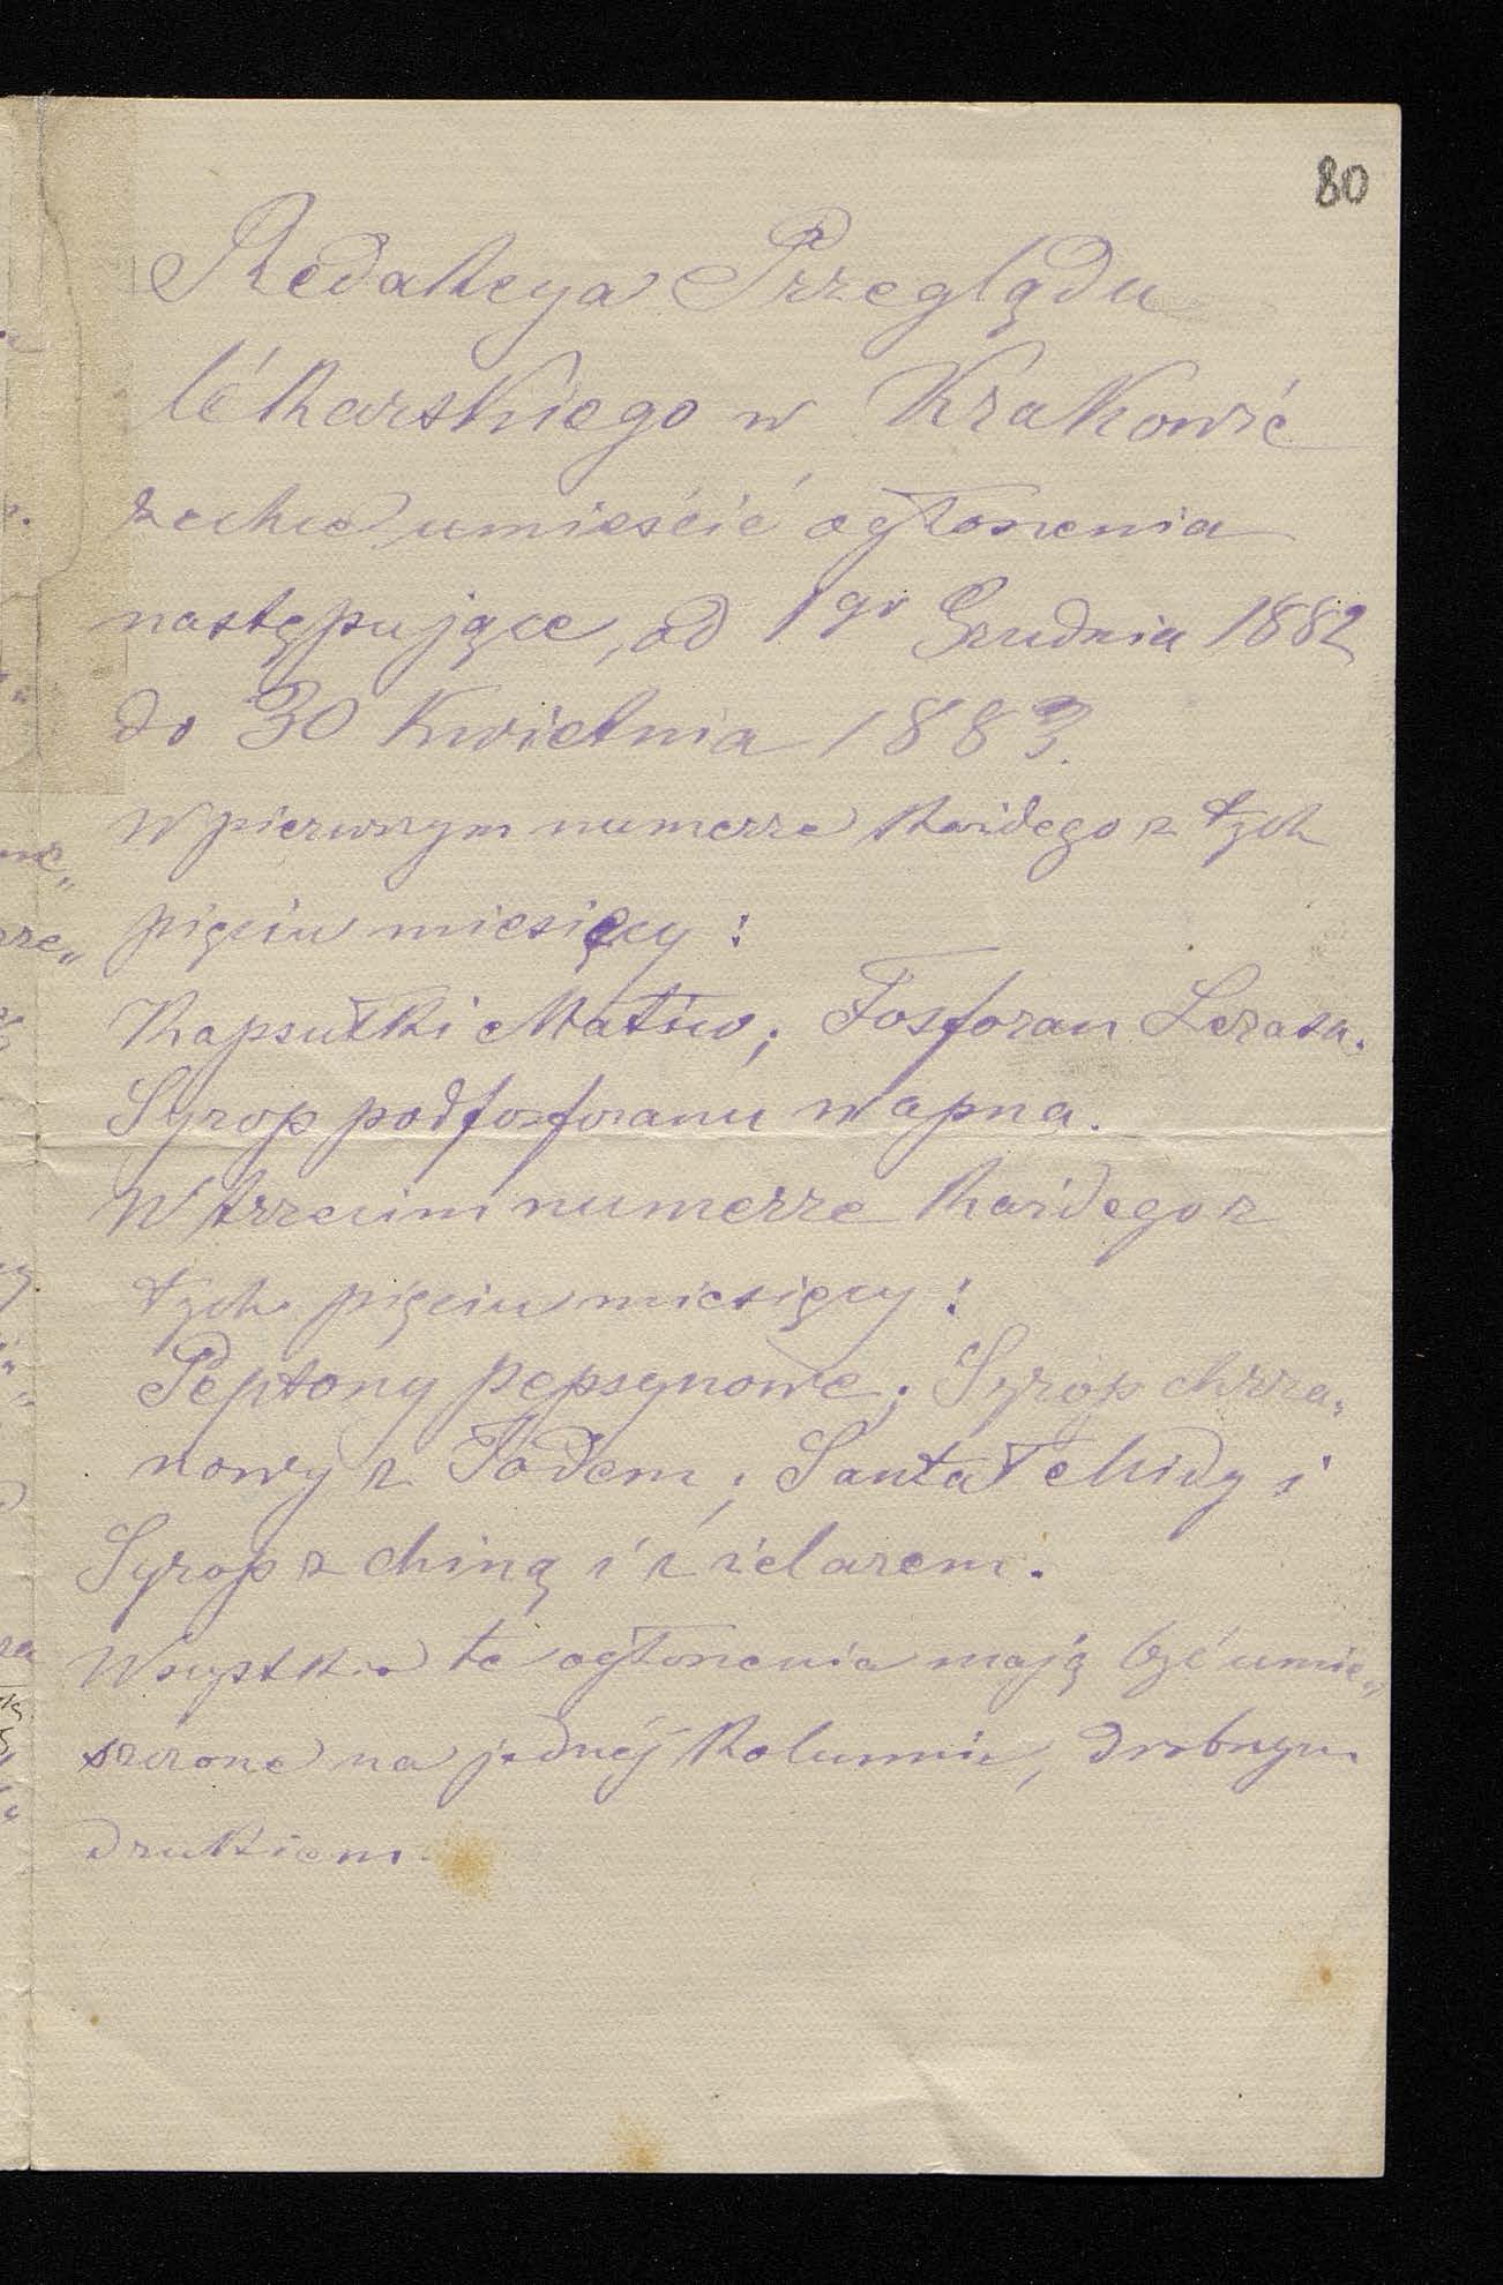 80
Redakcya Przeglądu
lékarskiego w Krakowie
zechce umieścić ogłoszenia
następujące, od 1go Grudnia 1882
do 30 Kwietnia 1883.
W pierwszym numerze każdego z tych
pięciu miesięcy:
Kapsułki Matico; Fosforan Lerasa.
Syrop podfosforanu wapna.
W trzecim numerze każdego z
tych pięciu miesięcy:
Peptony pepsynowe; Syrop chrza„
nowy z Jodem; Santal Midy i
Syrop z chiną i żelazem.
Wszystkie te ogłoszenia mają być umie„
szczone na jednéj kolumnie, drobnym
drukiem.